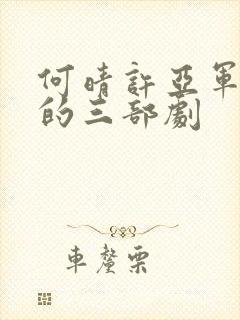 何晴許亞軍
的三部劇
車釐栗